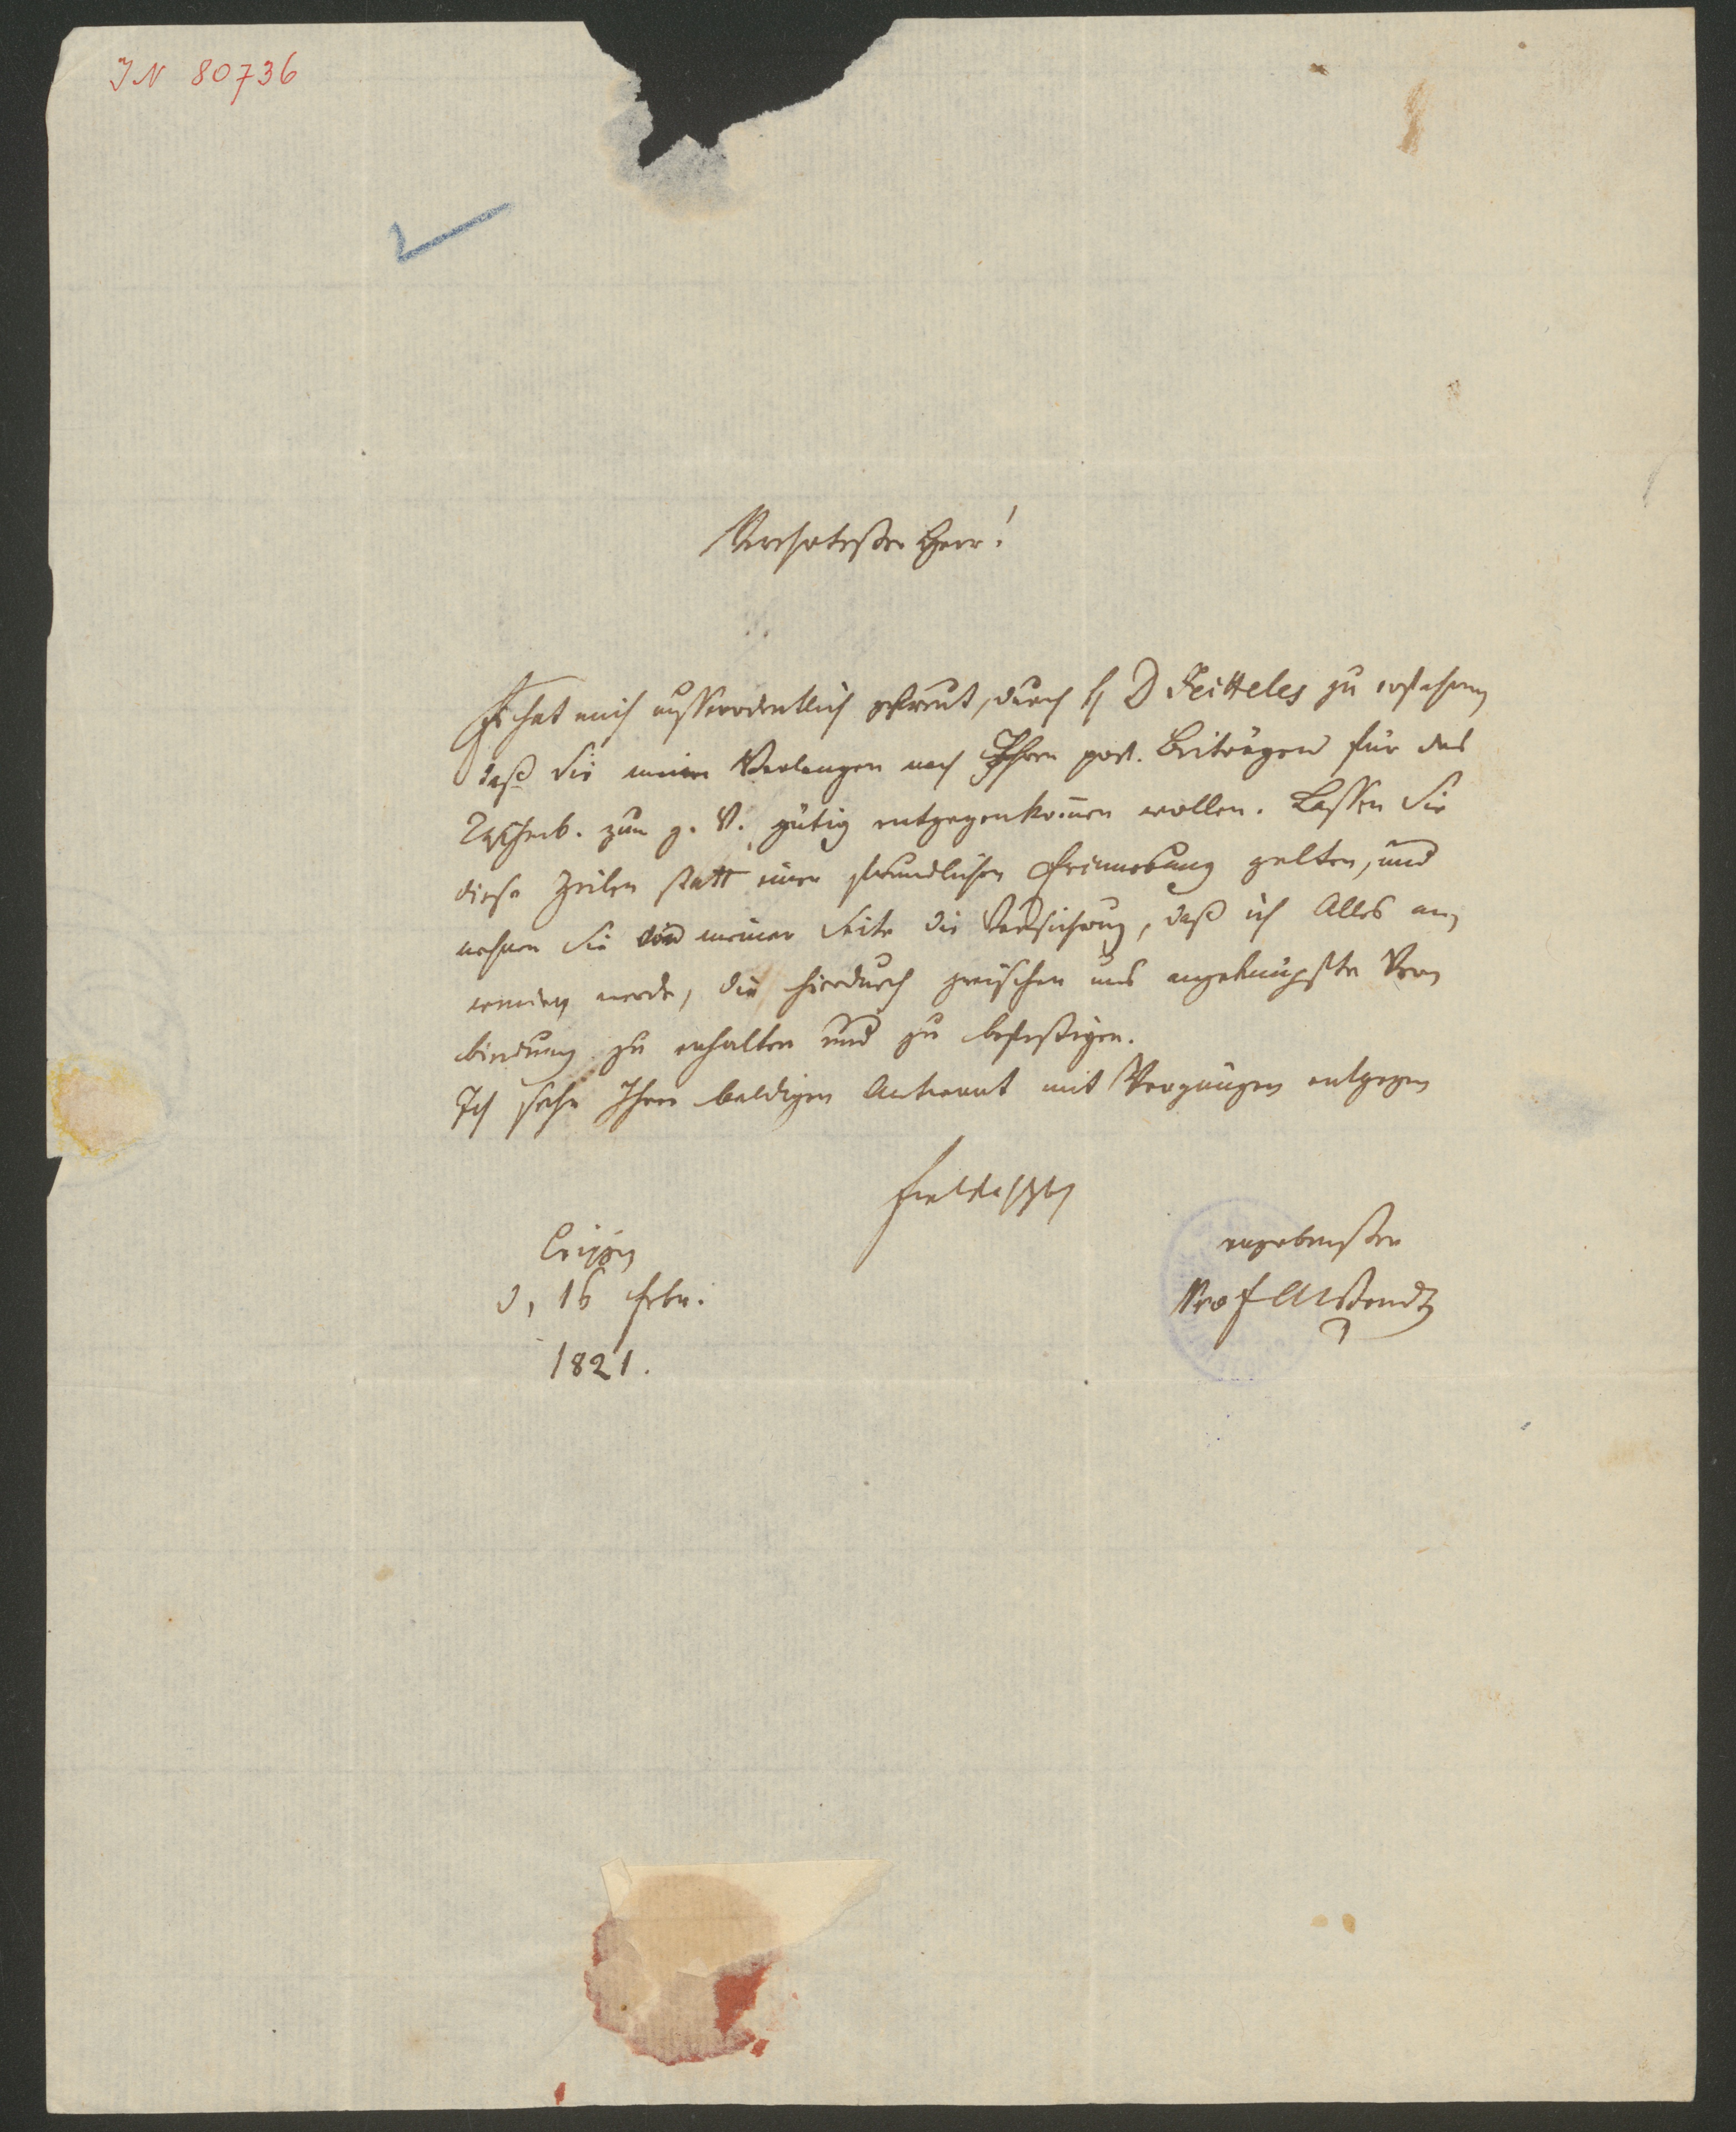 IN 80736
Verehrtester Herr!
Es hat mich ausserordentlich gefreut, durch H D Jeitteles zu erfahren
daß Sie meinem Verlangen nach Ihren poet. Beiträgen für das
Taschenb. zum g. V. gütig entgegenkom̄en wollen. Lassen Sie
diese Zeilen statt einer freundlichen Erinnerung gelten, und
nehmen Sie von meiner Seite die Versicherung, daß ich Alles an
wenden werde, die hierdurch zwischen uns angeknüpfte Ver
bindung zu erhalten und zu befestigen.
Ich sehe Ihrer baldigen Antwort mit Vergnügen entgegen
Leipzig
d, 16 Febr.
1821.
ergebenster
Prof A Wendt